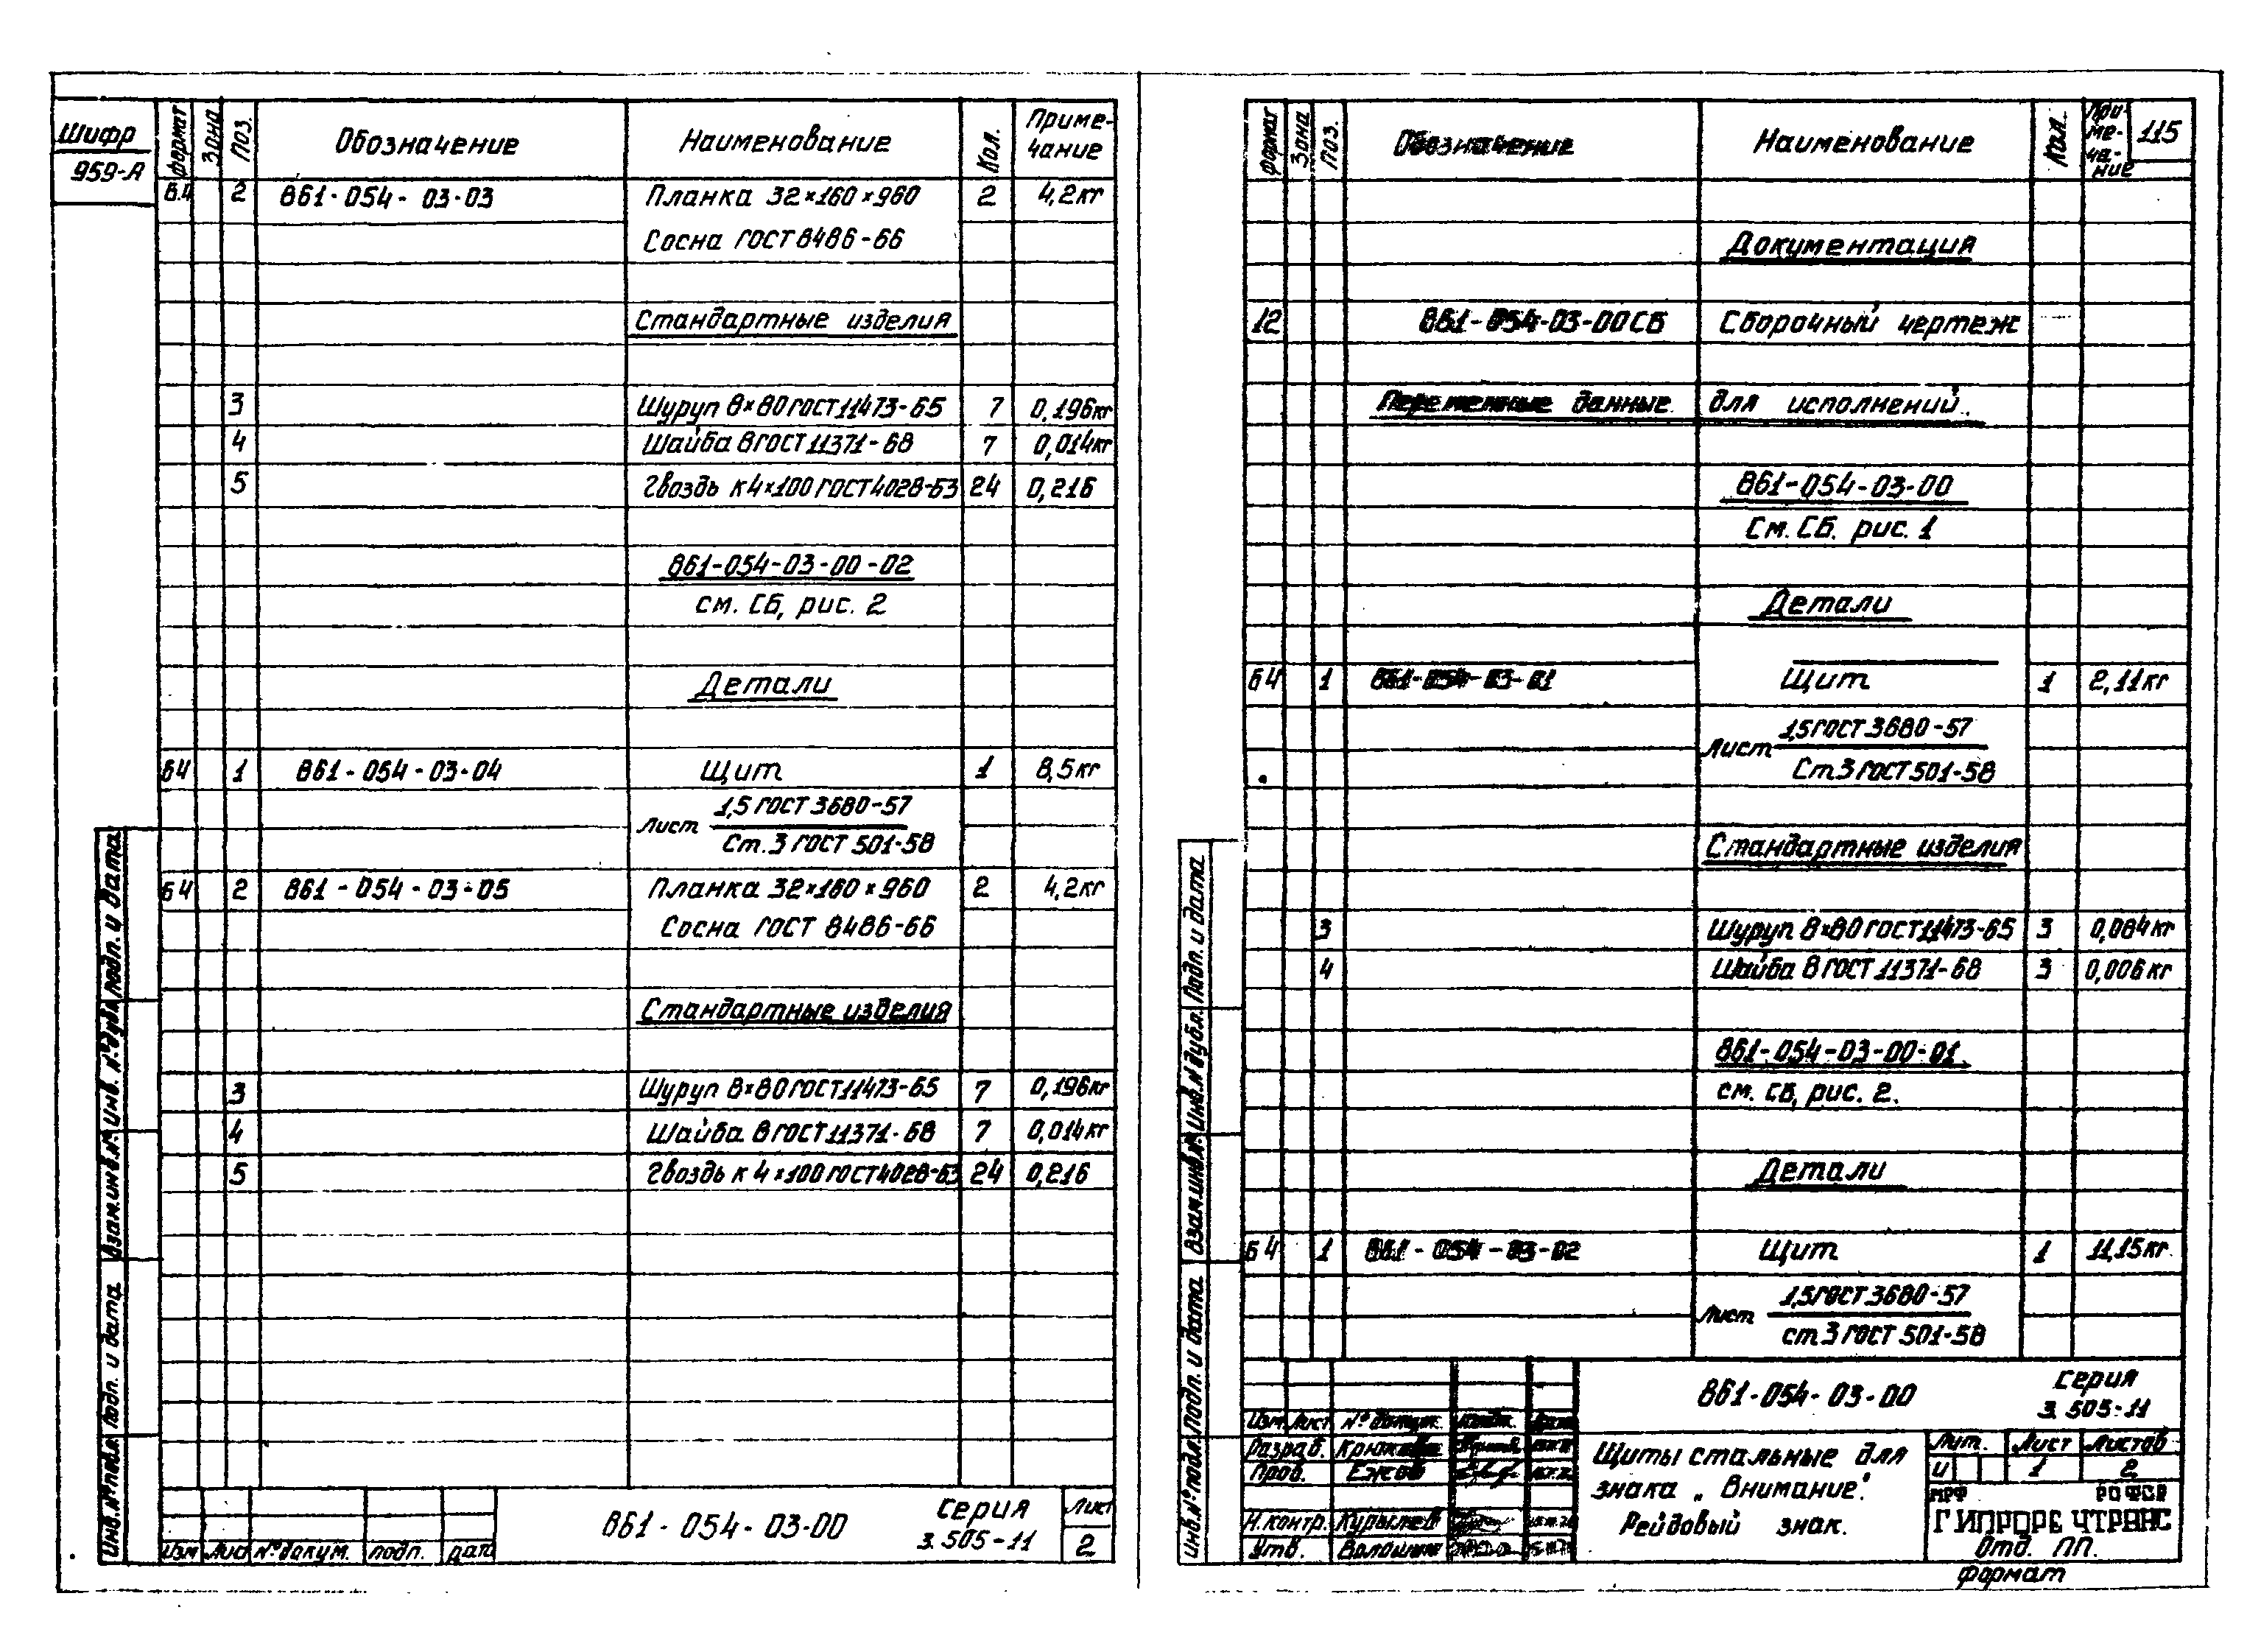 Шифр
959-А
формат Зона Поз. Обозначение Наименование Кол. Приме-
чание
Б.4 2 861-054-03-03 Планка 32×160×960 2 4,2кг
Сосна ГОСТ 8486-66
Стандартные изделия
3 Шуруп 8×80 ГОСТ 11473-65 7 0,196кг
4 Шайба 8 ГОСТ 11371-68 7 0,014кг
5 Гвоздь К4×100 ГОСТ 4028-63 24 0,216
861-054-03-00-02
см. СБ, рис. 2
Детали
Б4 1 861-054-03-04 Щит 1 8,5кг
1,5 ГОСТ 3680-57
Лист
Ст.3 ГОСТ 501-58
Б4 2 861-054-03-05 Планка 32×160×960 2 4,2кг
Сосна ГОСТ 8486-66
Стандартные изделия
3 Шуруп 8×80 ГОСТ 11473-65 7 0,196кг
4 Шайба 8 ГОСТ 11371-68 7 0,014кг
5 Гвоздь К4×100 ГОСТ 4028-63 24 0,216
Инв.№ подл. Подп. и дата Взам.инв.№ Инв.№ дубл. Подп. и дата
Изм Лис № докум. подп. дат
861-054-03-00
Серия
3.505-11
Лист
2
формат Зона Поз. Обозначение Наименование Кол. При-
ме-
ча-
ние
115
Документация
12 861-054-03-00СБ Сборочный чертеж
Переменные данные для исполнений.
861-054-03-00
См. СБ. рис. 1
Детали
Б4 1 861-054-03-01 Щит 1 2,11кг
1,5 ГОСТ 3680-57
Лист
Ст3 ГОСТ 501-58
Стандартные изделия
3 Шуруп 8×80 ГОСТ 11473-65 3 0,084кг
4 Шайба 8 ГОСТ 11371-68 3 0,006кг
861-054-03-00-01
см. СБ, рис. 2.
Детали
Б4 1 861-054-03-02 Щит 1 11,15кг
1,5 ГОСТ 3680-57
Лист
Ст3 ГОСТ 501-58
Инв.№ подл. Подп. и дата Взам.инв.№ Инв.№ дубл. Подп. и дата
861-054-03-00
Серия
3.505-11
Изм Лист № докум.
Разраб.
Пров. Ежов
Н.контр. Курылев
Утв. Волошин
Щиты стальные для
знака „Внимание".
Рейдовый знак.
Лит. Лист Листов
И 1 2
МРФ РСФСР
ГИПРОРЕЧТРАНС
Отд. ПП.
Формат